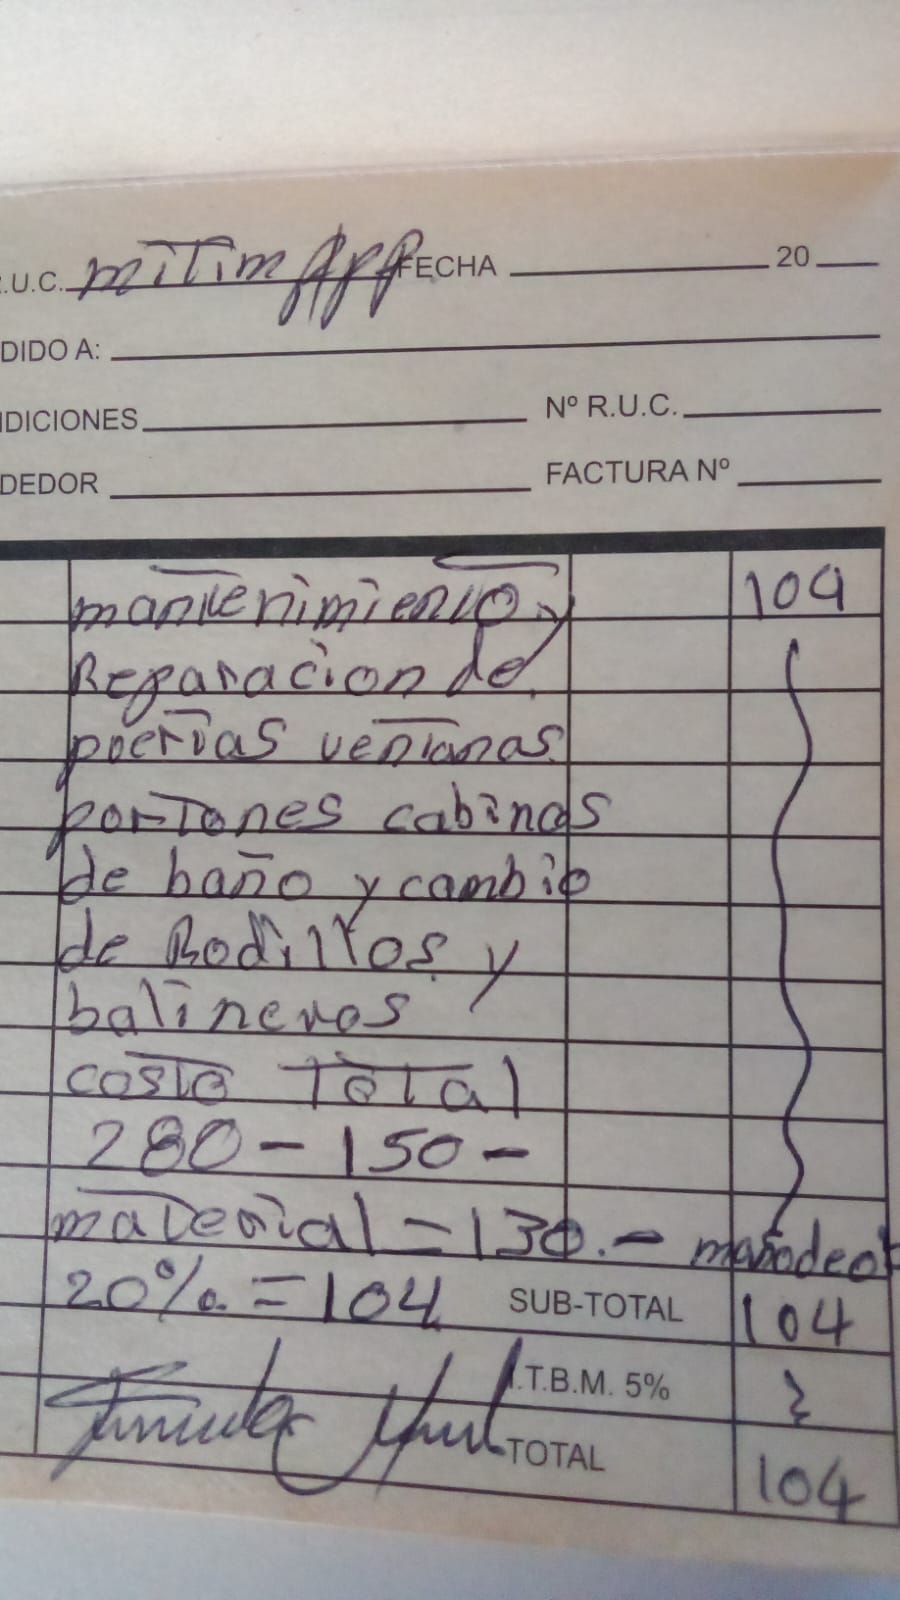 R.U.C. mitim App FECHA 20
DIDO A:
NDICIONES Nº R.U.C.
DEDOR FACTURA Nº
mantenimiento y 104
Reparacion de
poertas ventanas
portones cabinas
de baño y cambio
de Rodillos y
balineros
costo Total
280 - 150 -
material = 130. - manodeob
20% = 104 SUB-TOTAL 104
I.T.B.M. 5%
TOTAL 104